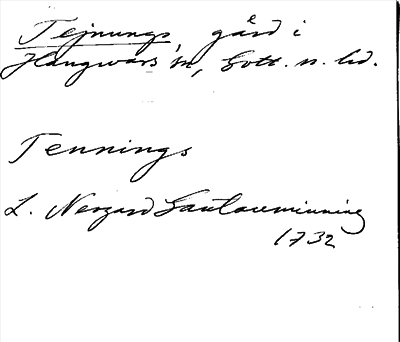 Tejnungs, gård i
Hangvars sn, Gotl. n. hd.
Tennings
L. Nergard Gautaueminning
1732